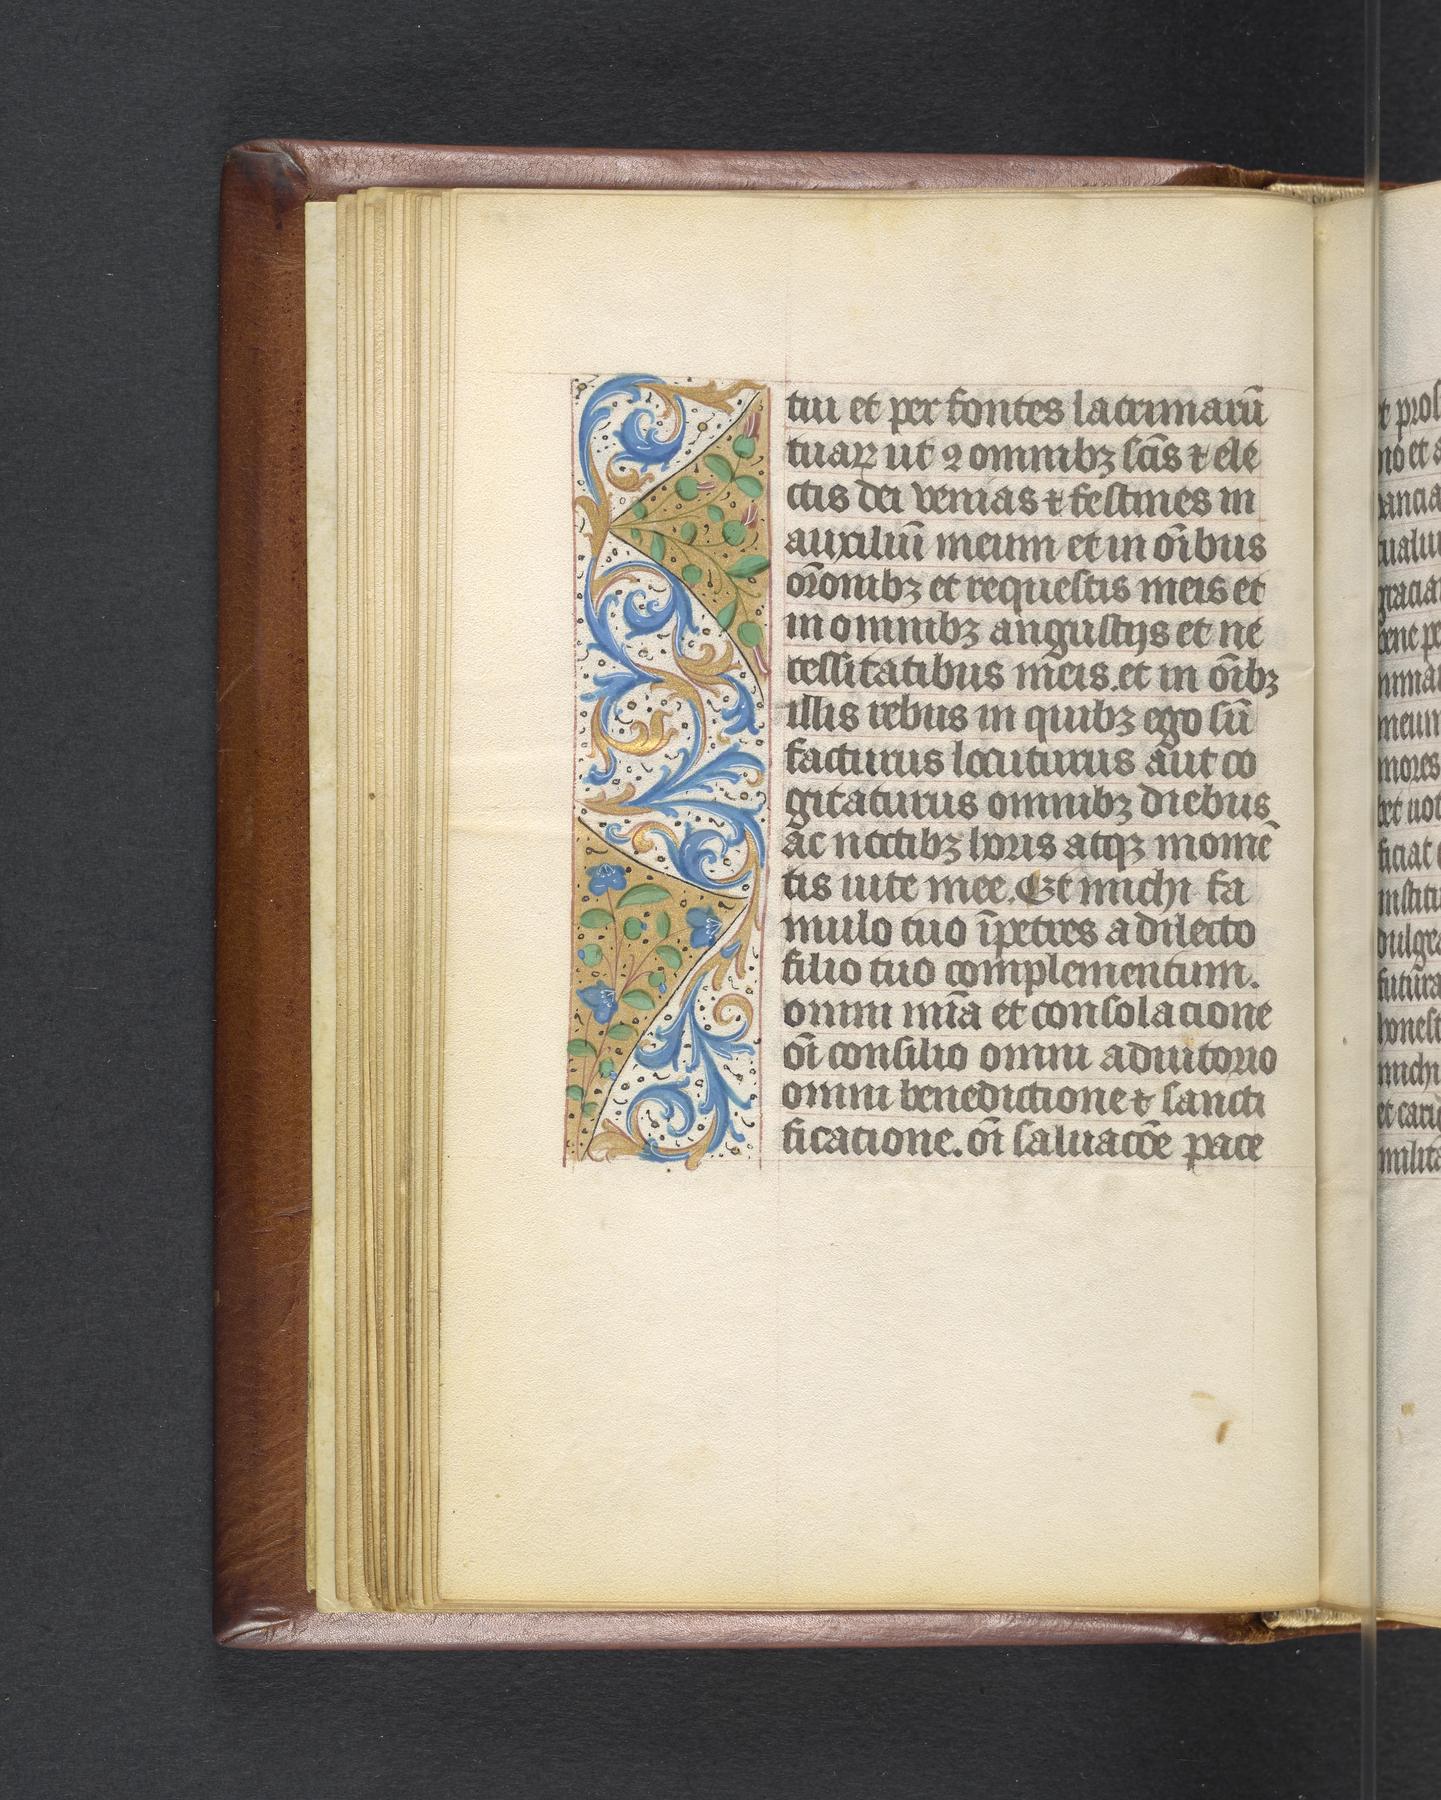 tui et per fontes lacrimarū
tuaꝝ ut ꝯ omnibꝫ sc̄is ⁊ ele
ctis dei venias ⁊ festines in
auxiliū meum et in oībus
orōnibꝫ et requestis meis et
in omnibꝫ angustijs et ne
cessitatibus meis. et in oībꝫ
illis rebus in quibꝫ ego sū
facturus locuturus aut co
gitaturus omnibꝫ diebus
ac noctibꝫ horis atqꝫ momē
tis uite mee. Et michi fa
mulo tuo īpetres a dilecto
filio tuo complementum.
omni mīa et consolacione
oī consilio omni adiutorio
omni benedictione ⁊ sancti
ficatione. oī saluacōe pace
t pros
no et a
meum
mores
ficiat
michi
milita